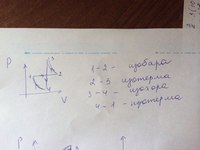 P
3
1 2
4
V
1-2 - изобара
2-3 изотерма
3-4 - изохора
4-1 - изотерма